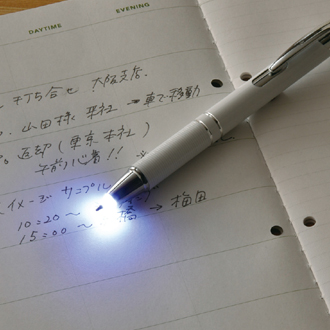 DAYTIME EVENING
打ち合せ 大阪支店.
山田様 来社 → 車で移動
返却(東京本社)
午前必着!!
イメージ サンプル
10:20〜
15:00〜 橋 → 梅田